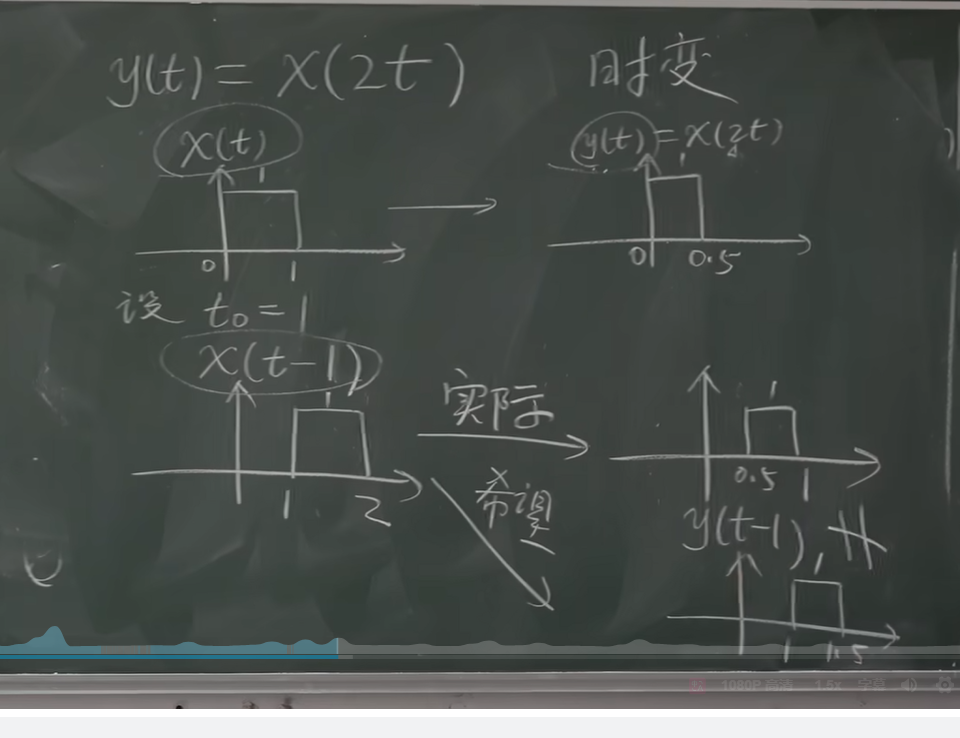 y(t) = x(2t) 时变
x(t)
1
0 1
y(t) = x(2t)
1
0 0.5
设 t₀ = 1
x(t-1)
1
1 2
实际
希望
1
0.5 1
y(t-1),
1
1 1.5
1080P 高清 1.5x 字幕